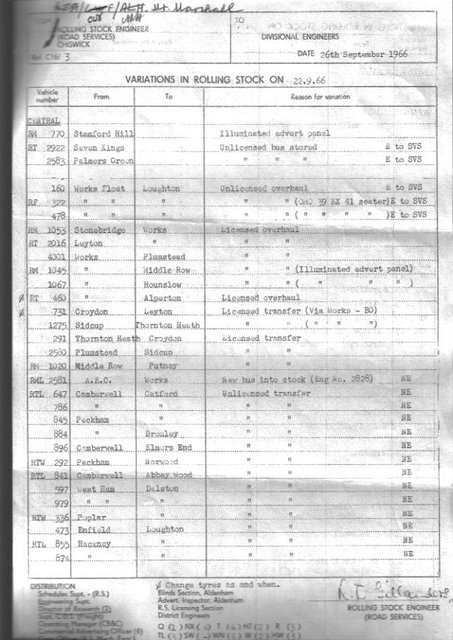 Mr. Marshall
ROLLING STOCK ENGINEER
(ROAD SERVICES)
CHISWICK
3
TO
DIVISIONAL ENGINEERS
DATE 26th September 1966
VARIATIONS IN ROLLING STOCK ON 22.9.66
Vehicle number From To Reason for variation
CENTRAL
RM 770 Stamford Hill Illuminated advert panel
RT 2922 Seven Kings Unlicensed bus stored E to SVS
2583 Palmers Green " " " E to SVS
160 Works float Loughton Unlicensed overhaul E to SVS
RF 322 " " " " " (OMO 39 EX 41 seater) E to SVS
478 " " " " " ( " " " " ) E to SVS
RM 1053 Stonebridge Works Licensed overhaul
RT 2016 Leyton " " "
4001 Works Plumstead " "
RM 1045 " Middle Row " " (Illuminated advert panel)
1067 " Hounslow " " ( " " " )
ø RT 460 " Alperton Licensed overhaul
ø 731 Croydon Leyton Licensed transfer (Via Works - BO)
1275 Sidcup Thornton Heath " " ( " " " )
291 Thornton Heath Croydon Licensed transfer
2580 Plumstead Sidcup " "
RM 1020 Middle Row Putney " "
RML 2581 A.E.C. Works New bus into stock (Eng No. 2828) NE
RTL 647 Camberwell Catford Unlicensed transfer NE
786 " " " " NE
845 Peckham " " " NE
884 " Bromley " " NE
896 Camberwell Elmers End " " NE
RTW 292 Peckham Norwood " " NE
RTL 841 Camberwell Abbey Wood " " NE
597 West Ham Dalston " " NE
979 " " " " " NE
RTW 336 Poplar " " " NE
473 Enfield Loughton " " NE
RTL 855 Hackney " " " NE
874 " " " " NE
DISTRIBUTION
Schedules Supt. - (R.S.)
ø Change tyres as and when.
Blinds Section, Aldenham
Advert. Inspector, Aldenham
R.S. Licensing Section
District Engineers
ROLLING STOCK ENGINEER
(ROAD SERVICES)